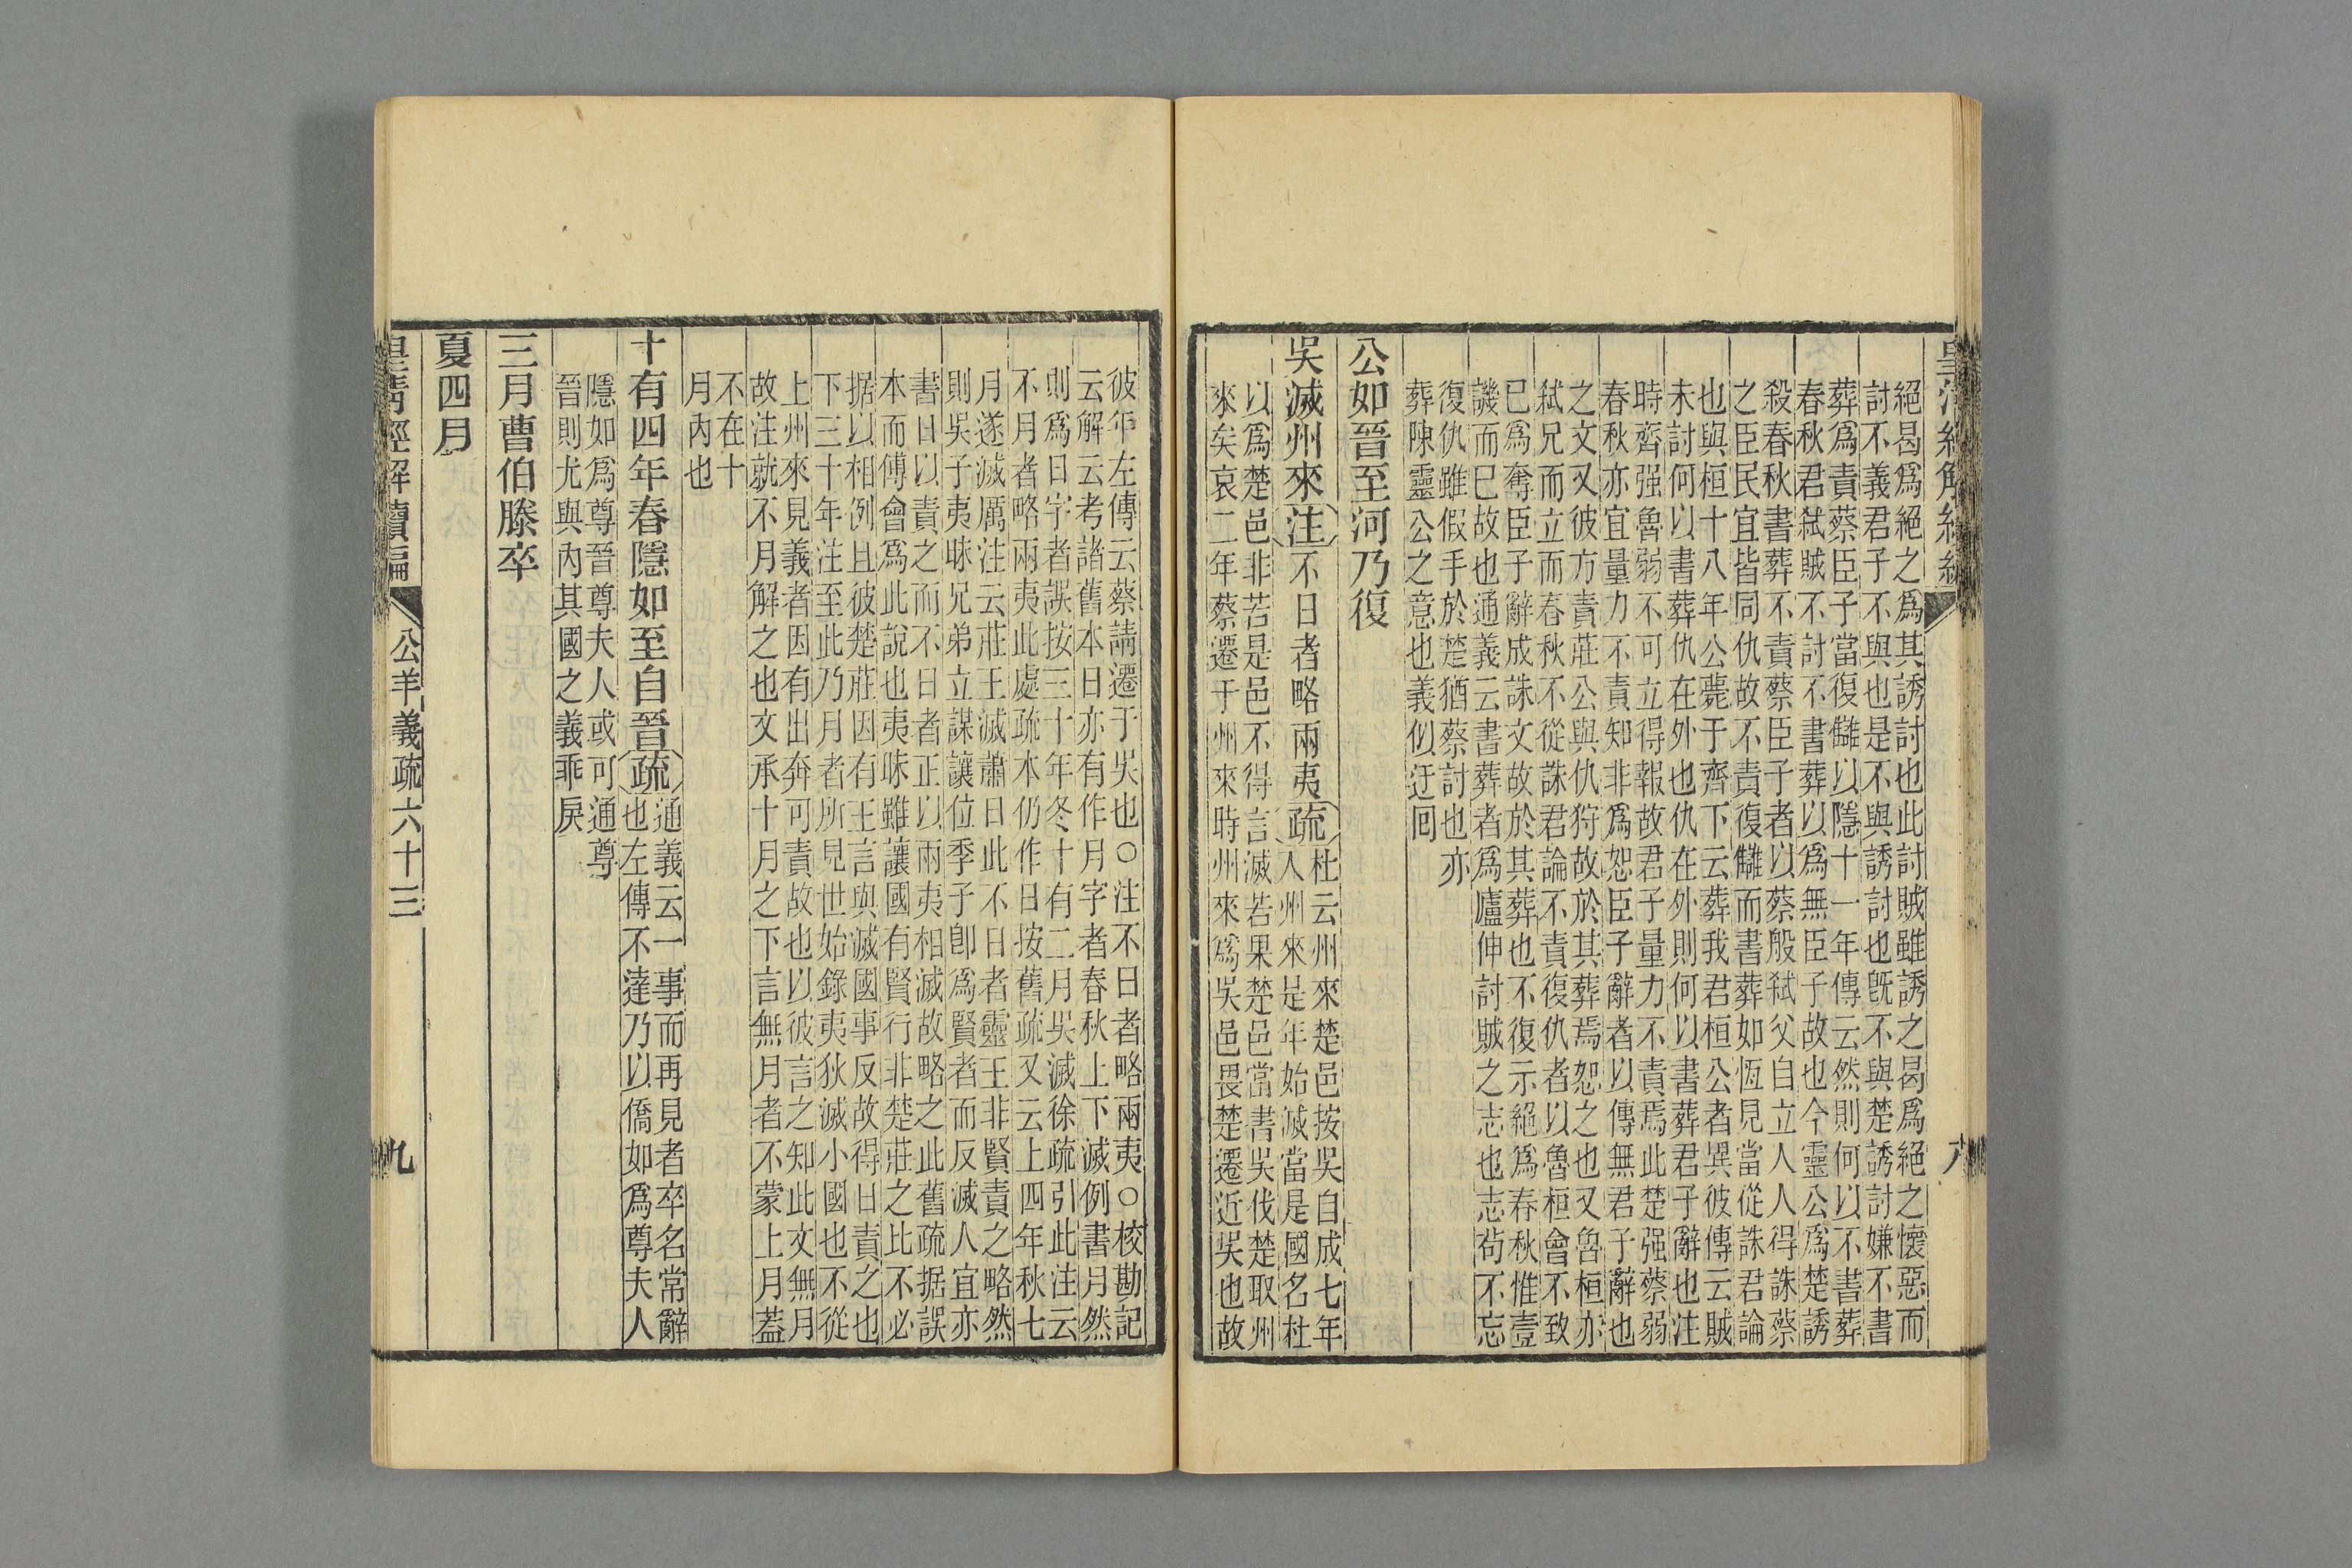 絕曷爲絕之爲其誘討也此討賊雖誘之曷爲絕之懷惡而
討不義君子不與也是不與誘討也旣不與楚誘討嫌不書
葬爲責蔡臣子當復讎以隱十一年傳云然則何以不書葬
春秋君弑賊不討不書葬以爲無臣子故也今靈公爲楚誘
殺春秋書葬不責蔡臣子者以蔡般弑父自立人人得誅蔡
之臣民宜皆同仇故不責復讎而書葬如恆見當從誅君論
也與桓十八年公薨于齊下云葬我君桓公者異彼傳云賊
未討何以書葬仇在外也仇在外則何以書葬君子辭也注
時齊强魯弱不可立得報故君子量力不責焉此楚强蔡弱
春秋亦宜量力不責知非爲恕臣子辭者以傳無君子辭也
之文又彼方責莊公與仇狩故於其葬焉恕之也又魯桓亦
弑兄而立而春秋不從誅君論不責復仇者以魯桓會不致
已爲奪臣子辭成誅文故於其葬也不復示絕爲春秋惟壹
譏而已故也通義云書葬者爲廬伸討賊之志也志茍不忘
復仇雖假手於楚猶蔡討也亦
葬陳靈公之意也義似迂回
公如晉至河乃復
吳滅州來注不日者略兩夷疏杜云州來楚邑按吳自成七年
入州來是年始滅當是國名杜
以爲楚邑非若是邑不得言滅若果楚邑當書吳伐楚取州
來矣哀二年蔡遷于州來時州來爲吳邑畏楚遷近吳也故
八
彼年左傳云蔡請遷于吳也○注不日者略兩夷○校勘記
云解云考諸舊本日亦有作月字者春秋上下滅例書月然
則爲日字者誤按三十年冬十有二月吳滅徐疏引此注云
不月者略兩夷此處疏本仍作日按舊疏又云上四年秋七
月遂滅厲注云莊王滅蕭日此不日者靈王非賢責之略然
則吳子夷昧兄弟立謀讓位季子卽爲賢者而反滅人宜亦
書日以責之而不日者正以兩夷相滅故略之此舊疏据誤
本而傅會爲此說也夷昧雖讓國有賢行非楚莊之比不必
据以相例且彼楚莊因有王言與滅國事反故得日責之也
下三十年注至此乃月者所見世始錄夷狄滅小國也不從
上州來見義者因有出奔可責故也以彼言之知此文無月
故注就不月解之也文承十月之下言無月者不蒙上月蓋
不在十
月內也
十有四年春隱如至自晉疏通義云一事而再見者卒名常辭
也左傳不達乃以僑如爲尊夫人
隱如爲尊晉尊夫人或可通尊
晉則尤與內其國之義乖戾
三月曹伯滕卒
夏四月
皇淸經解續編　公羊義疏六十三　九